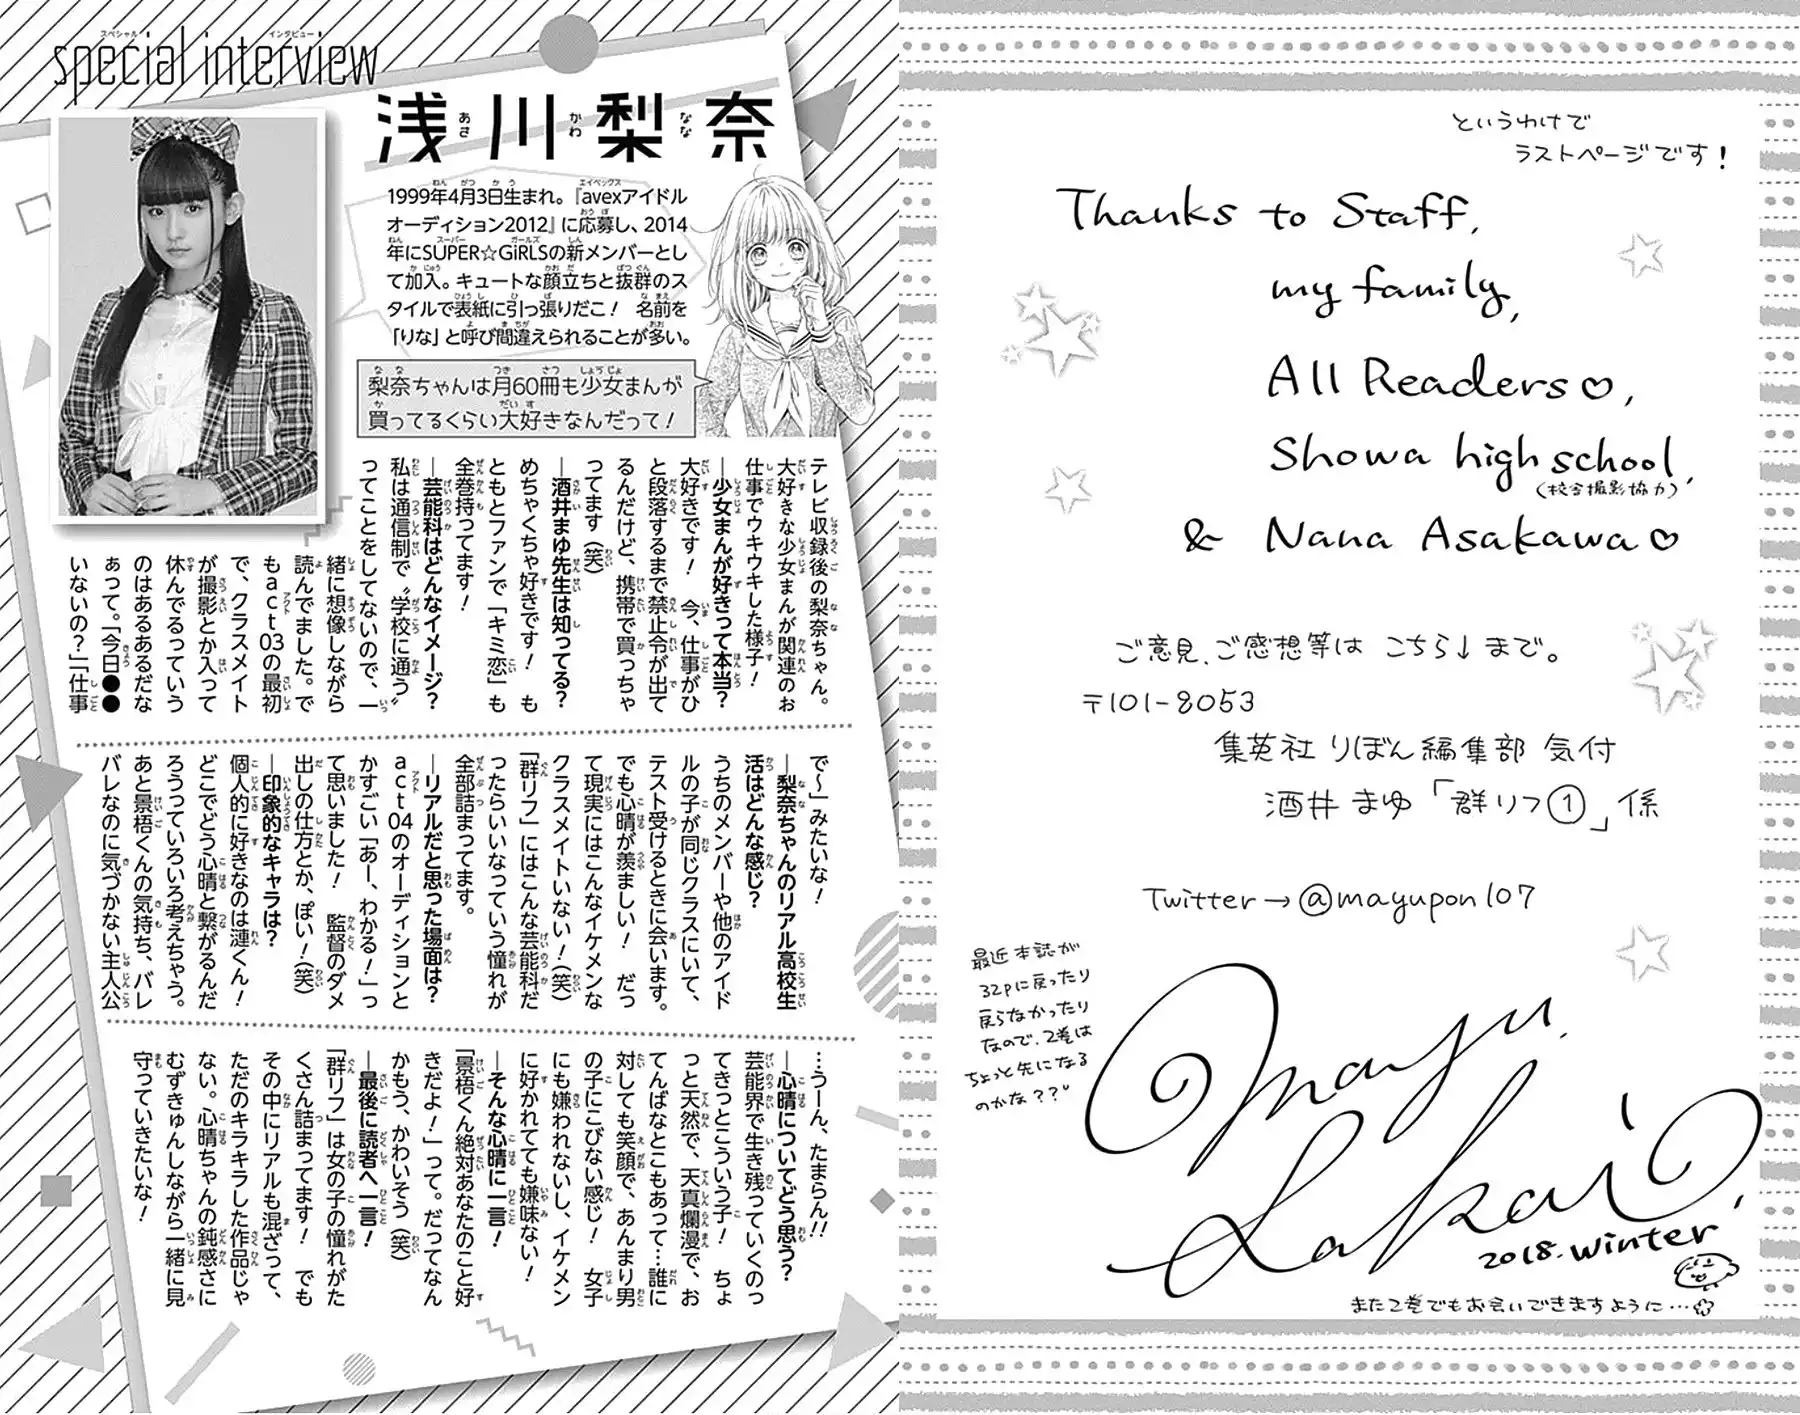 special interview
スペシャル インタビュー
浅川梨奈
あさ かわ なな
1999年4月3日生まれ。『avexアイドル
オーディション2012』に応募し、2014
年にSUPER☆GiRLSの新メンバーとし
て加入。キュートな顔立ちと抜群のス
タイルで表紙に引っ張りだこ！ 名前を
「りな」と呼び間違えられることが多い。
梨奈ちゃんは月60冊も少女まんが
買ってるくらい大好きなんだって！
テレビ収録後の梨奈ちゃん。
大好きな少女まんが関連のお
仕事でウキウキした様子！
―少女まんが好きって本当？
大好きです！ 今、仕事がひ
と段落するまで禁止令が出て
るんだけど、携帯で買っちゃ
ってます（笑）
―酒井まゆ先生は知ってる？
めちゃくちゃ好きです！ も
ともとファンで「キミ恋」も
全巻持ってます！
―芸能科はどんなイメージ？
私は通信制で〝学校に通う〟
ってことをしてないので、一
緒に想像しながら
読んでました。で
もact03の最初
で、クラスメイト
が撮影とか入って
休んでるっていう
のはあるあるだな
あって。「今日●●
いないの？」「仕事
で～」みたいな！
―梨奈ちゃんのリアル高校生
活はどんな感じ？
うちのメンバーや他のアイド
ルの子が同じクラスにいて、
テスト受けるときに会います。
でも心晴が羨ましい！ だっ
て現実にはこんなイケメンな
クラスメイトいない！（笑）
「群リフ」にはこんな芸能科だ
ったらいいなっていう憧れが
全部詰まってます。
―リアルだと思った場面は？
act04のオーディションと
かすごい「あー、わかる！」っ
て思いました！ 監督のダメ
出しの仕方とか、ぽい！（笑）
―印象的なキャラは？
個人的に好きなのは漣くん！
どこでどう心晴と繋がるんだ
ろうっていろいろ考えちゃう。
あと景悟くんの気持ち、バレ
バレなのに気づかない主人公
…うーん、たまらん!!
―心晴についてどう思う？
芸能界で生き残っていくのっ
てきっとこういう子！ ちょ
っと天然で、天真爛漫で、お
てんばなとこもあって…誰に
対しても笑顔で、あんまり男
の子にこびない感じ！ 女子
にも嫌われないし、イケメン
に好かれてても嫌味ない！
―そんな心晴に一言！
「景悟くん絶対あなたのこと好
きだよ！」って。だってなん
かもう、かわいそう（笑）
―最後に読者へ一言！
「群リフ」は女の子の憧れがた
くさん詰まってます！ でも
その中にリアルも混ざって、
ただのキラキラした作品じゃ
ない。心晴ちゃんの鈍感さに
むずきゅんしながら一緒に見
守っていきたいな！
というわけで
ラストページです！
Thanks to Staff,
my family,
All Readers♡,
Showa high school,
(校舎撮影協力)
& Nana Asakawa♡
ご意見、ご感想等は こちら↓まで。
〒101-8053
集英社 りぼん編集部 気付
酒井まゆ「群リフ①」係
Twitter→@mayupon107
最近本誌が
32pに戻ったり
戻らなかったり
なので、2巻は
ちょっと先になる
のかな??
Mayu.
Sakai
2018.winter
また2巻でもお会いできますように…